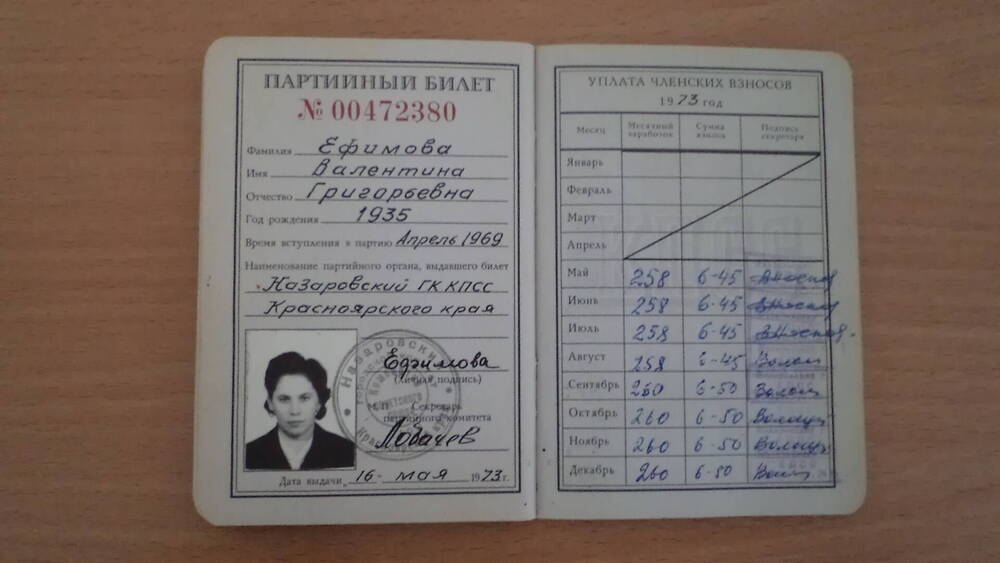 ПАРТИЙНЫЙ БИЛЕТ
№ 00472380
Фамилия Ефимова
Имя Валентина
Отчество Григорьевна
Год рождения 1935
Время вступления в партию Апрель 1969
Наименование партийного органа, выдавшего билет
Назаровский ГК КПСС
Красноярского края
Ефимова
(личная подпись)
М.П. Секретарь
партийного комитета
Лобачев
Дата выдачи 16 мая 1973 г.
УПЛАТА ЧЛЕНСКИХ ВЗНОСОВ
1973 год
Месяц Месячный заработок Сумма взноса Подпись секретаря
Январь
Февраль
Март
Апрель
Май 258 6-45
Июнь 258 6-45
Июль 258 6-45
Август 258 6-45
Сентябрь 260 6-50
Октябрь 260 6-50
Ноябрь 260 6-50
Декабрь 260 6-50